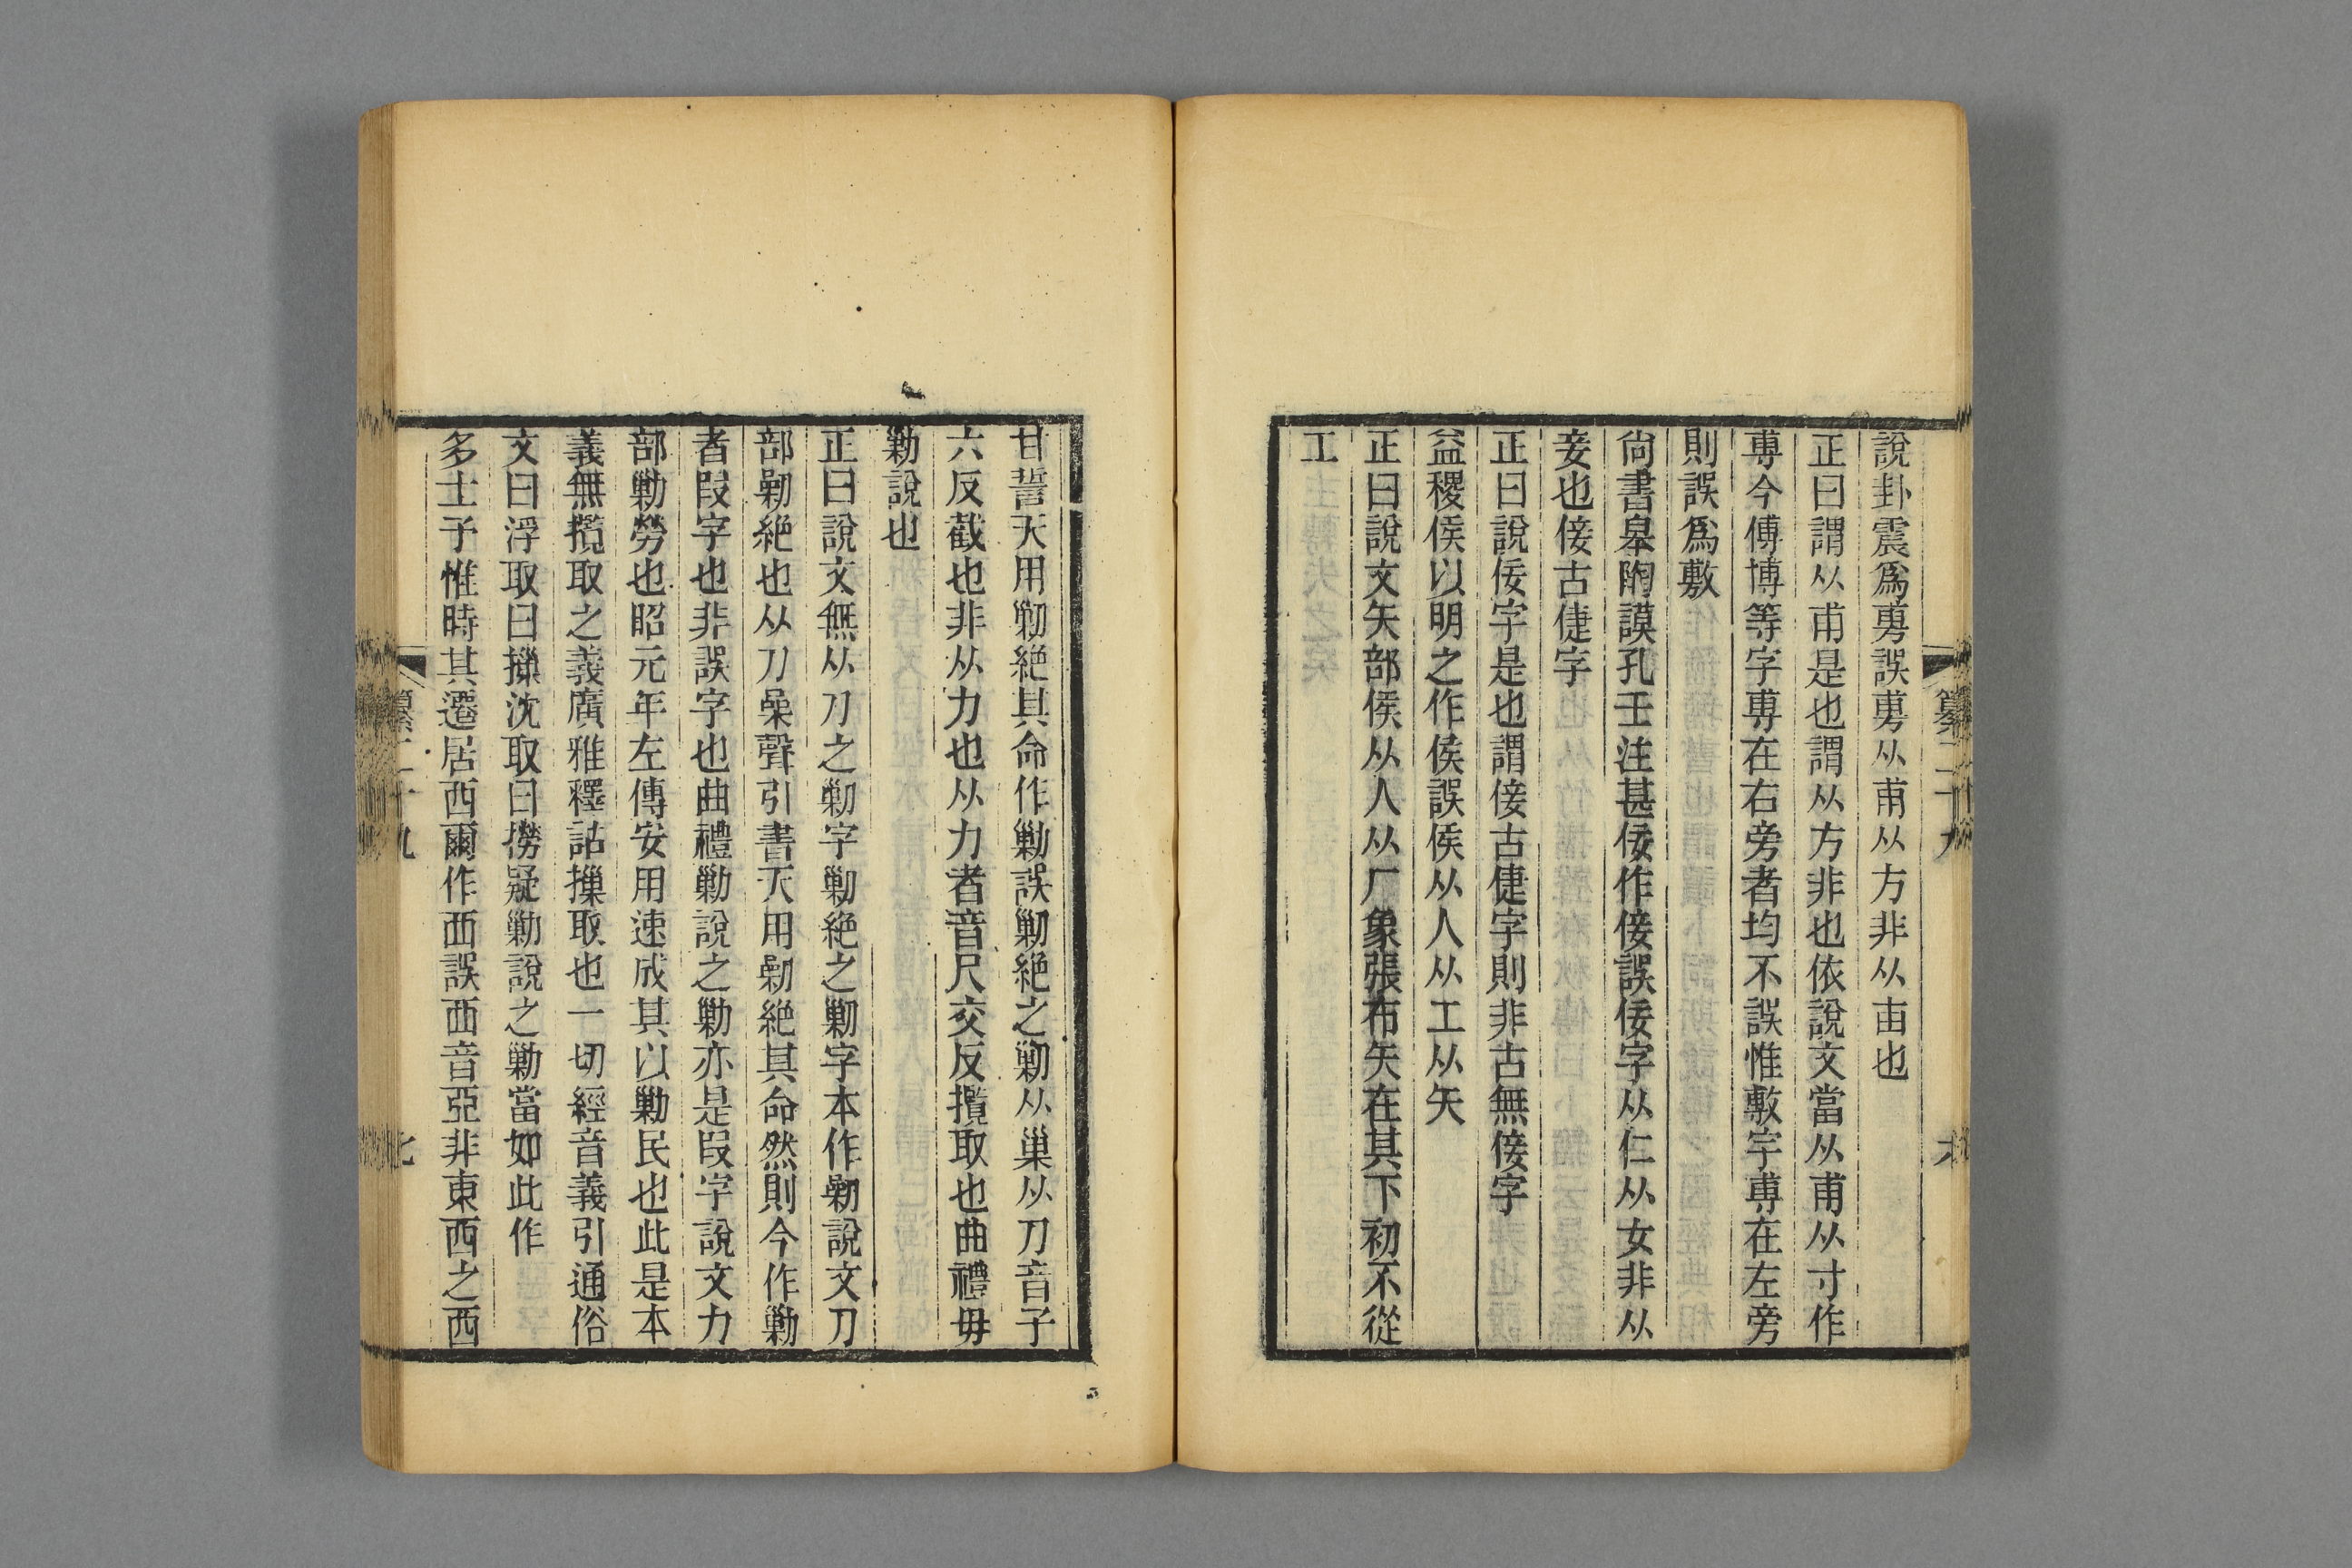 說卦震爲旉誤旉从甫从方非从甶也
正曰謂从甫是也謂从方非也依說文當从甫从寸作
尃今傅博等字尃在右旁者均不誤惟敷字尃在左旁
則誤爲敷
尙書皋陶謨孔壬注甚佞作倿誤佞字从仁从女非从
妾也倿古倢字
正曰說佞字是也謂倿古倢字則非古無倿字
益稷侯以明之作侯誤侯从人从工从矢
正曰說文矢部侯从人从厂象張布矢在其下初不從
工
甘誓天用勦絕其命作勦誤剿絕之剿从巢从刀音子
六反截也非从力也从力者音尺交反攬取也曲禮毋
勦說也
正曰說文無从刀之剿字剿絕之剿字本作劋說文刀
部劋絕也从刀喿聲引書天用劋絕其命然則今作勦
者叚字也非誤字也曲禮勦說之勦亦是叚字說文力
部勦勞也昭元年左傳安用速成其以勦民也此是本
義無攬取之義廣雅釋詁摷取也一切經音義引通俗
文曰浮取曰摷沈取曰撈疑勦說之勦當如此作
多士予惟時其遷居西爾作西誤襾音亞非東西之西